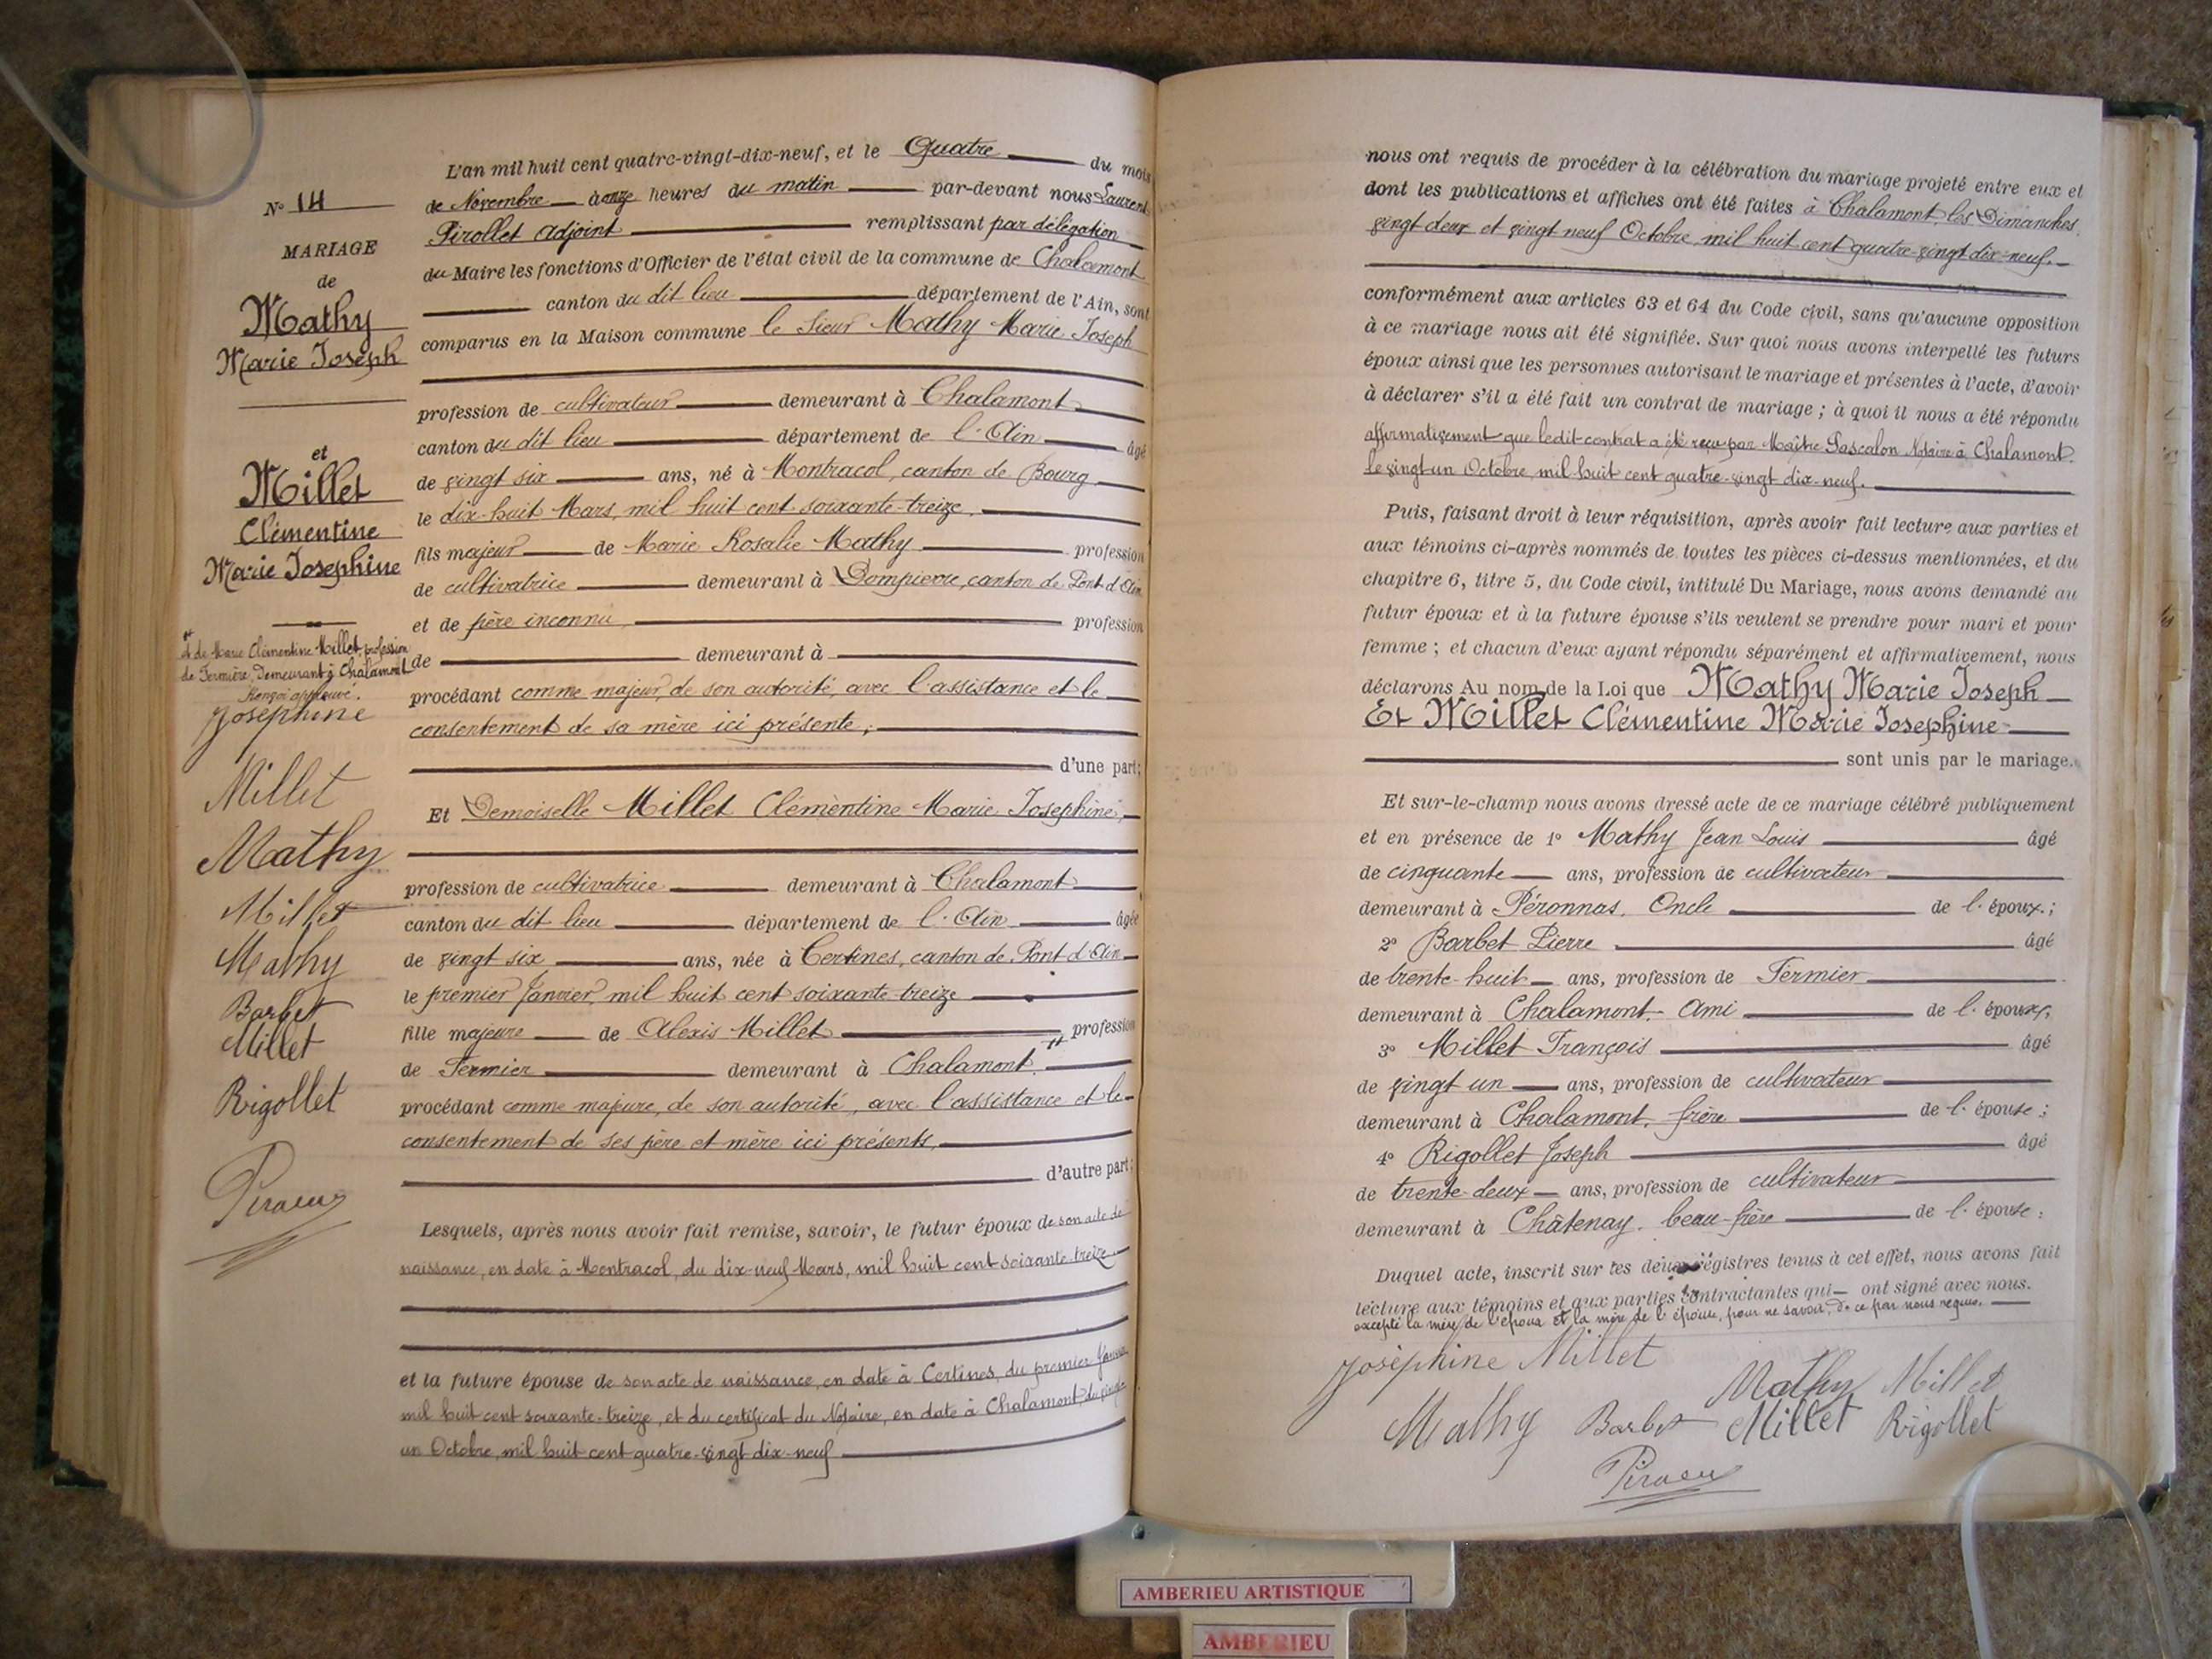 L'an mil huit cent quatre-vingt-dix-neuf, et le Quatre du mois
de Novembre à onze heures du matin par-devant nous Laurent
Pirollet adjoint remplissant par délégation
du Maire les fonctions d'Officier de l'état civil de la commune de Chalamont
canton du dit lieu département de l'Ain, sont
comparus en la Maison commune le sieur Mathy Marie Joseph
profession de cultivateur demeurant à Chalamont
canton du dit lieu département de l'Ain âgé
de vingt six ans, né à Montracol, canton de Bourg
le dix-huit Mars, mil huit cent soixante-treize,
fils majeur de Marie Rosalie Mathy profession
de cultivatrice demeurant à Dompierre, canton de Pont d'Ain
et de père inconnu profession
de demeurant à
procédant comme majeur, de son autorité, avec l'assistance et le
consentement de sa mère ici présente;
d'une part;
Et Demoiselle Millet Clémentine Marie Josephine,
profession de cultivatrice demeurant à Chalamont
canton du dit lieu département de l'Ain âgée
de vingt six ans, née à Certines, canton de Pont d'Ain
le premier Janvier, mil huit cent soixante treize
fille majeure de Alexis Millet profession
de Fermier demeurant à Chalamont.
procédant comme majeure, de son autorité, avec l'assistance et le
consentement de ses père et mère ici présents,
d'autre part;
Lesquels, après nous avoir fait remise, savoir, le futur époux de son acte de
naissance, en date à Montracol, du dix-neuf Mars, mil huit cent soixante-treize.
et la future épouse de son acte de naissance, en date à Certines, du premier Janvier
mil huit cent soixante-treize, et du certificat du Notaire, en date à Chalamont, du vingt
un Octobre, mil huit cent quatre-vingt dix-neuf
N° 14
MARIAGE
de
Mathy
Marie Joseph
et
Millet
Clémentine
Marie Josephine
et de Marie Clémentine Millet, profession
de Fermière, Demeurant à Chalamont
Renvoi approuvé.
Joséphine
Millet
Mathy
Millet
Mathy
Barbet
Millet
Rigollet
nous ont requis de procéder à la célébration du mariage projeté entre eux et
dont les publications et affiches ont été faites à Chalamont, les Dimanches
vingt deux et vingt neuf Octobre, mil huit cent quatre-vingt dix-neuf.
conformément aux articles 63 et 64 du Code civil, sans qu'aucune opposition
à ce mariage nous ait été signifiée. Sur quoi nous avons interpellé les futurs
époux ainsi que les personnes autorisant le mariage et présentes à l'acte, d'avoir
à déclarer s'il a été fait un contrat de mariage; à quoi il nous a été répondu
affirmativement que ledit contrat a été reçu par Maître Pascalon Notaire à Chalamont.
le vingt un Octobre, mil huit cent quatre-vingt dix-neuf.
Puis, faisant droit à leur réquisition, après avoir fait lecture aux parties et
aux témoins ci-après nommés de toutes les pièces ci-dessus mentionnées, et du
chapitre 6, titre 5, du Code civil, intitulé Du Mariage, nous avons demandé au
futur époux et à la future épouse s'ils veulent se prendre pour mari et pour
femme; et chacun d'eux ayant répondu séparément et affirmativement, nous
déclarons Au nom de la Loi que Mathy Marie Joseph
Et Millet Clémentine Marie Josephine
sont unis par le mariage.
Et sur-le-champ nous avons dressé acte de ce mariage célébré publiquement
et en présence de 1° Mathy Jean Louis âgé
de cinquante ans, profession de cultivateur
demeurant à Péronnas, Oncle de l'époux;
2° Barbet Pierre âgé
de trente-huit ans, profession de Fermier
demeurant à Chalamont. Ami de l'époux;
3° Millet François âgé
de vingt un ans, profession de cultivateur
demeurant à Chalamont, frère de l'épouse;
4° Rigollet Joseph âgé
de trente-deux ans, profession de cultivateur
demeurant à Châtenay, beau-frère de l'épouse;
Duquel acte, inscrit sur les deux régistres tenus à cet effet, nous avons fait
lecture aux témoins et aux parties contractantes qui ont signé avec nous.
excepté la mère de l'époux et la mère de l'épouse, pour ne savoir, de ce par nous requis.
Joséphine Millet
Mathy Millet
Mathy Barbet Millet Rigollet
AMBERIEU ARTISTIQUE
AMBERIEU